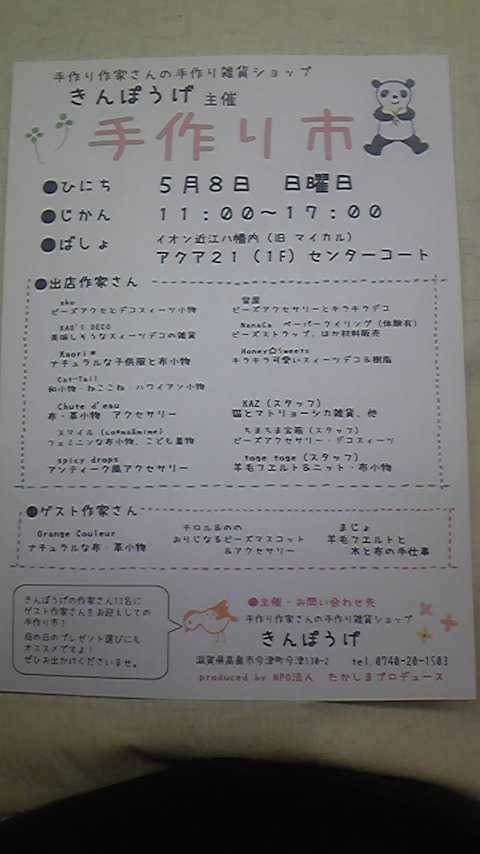 手作り作家さんの手作り雑貨ショップ
きんぽうげ 主催
手作り市
●ひにち 5月8日 日曜日
●じかん 11:00~17:00
●ばしょ イオン近江八幡内(旧 マイカル)
アクア21(1F)センターコート
●出店作家さん
ako
ビーズアクセとデコスィーツ小物
KAO'S DECO
美味しそうなスイーツデコの雑貨
Kaori*
ナチュラルな子供服と布小物
Cat-Tail
和小物・ねここね・ハワイアン小物
Chute d'eau
布・革小物 アクセサリー
スマイル(co*ma&mime)
フェミニンな布小物、こども量物
spicy drops
アンティーク風アクセサリー
ビーズアクセサリーとキラキラデコ
NanaCa ペーパークイリング(体験有)
ビーズストラップ、ほか材料販売
Honey☆Sweets
キラキラ可愛いスィーツデコ&樹脂
KAZ(スタッフ)
猫とマトリョーシカ雑貨、他
ちまちま宝箱(スタッフ)
ビーズアクセサリー・デコスィーツ
toge toge(スタッフ)
羊毛フエルト&ニット・布小物
●ゲスト作家さん
Orange Couleur
ナチュラルな布・革小物
チロル&のの
おりじなるビーズマスコット
&アクセサリー
まじょ
羊毛フエルトと
木と布の手仕事
きんぽうげの作家さん13名に
ゲスト作家さんをお迎えしての
手作り市!
母の日のプレゼント選びにも
オススメですよ!
ぜひお出かけくださいませ。
●主催・お問い合わせ先
手作り作家さんの手作り雑貨ショップ
きんぽうげ
滋賀県高島市今津町今津130-2 tel.0740-20-1503
produced by NPO法人 たかしまプロデュース